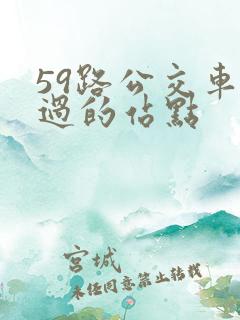 59路公交車
過的佔點
宮城
未任同意禁止转载